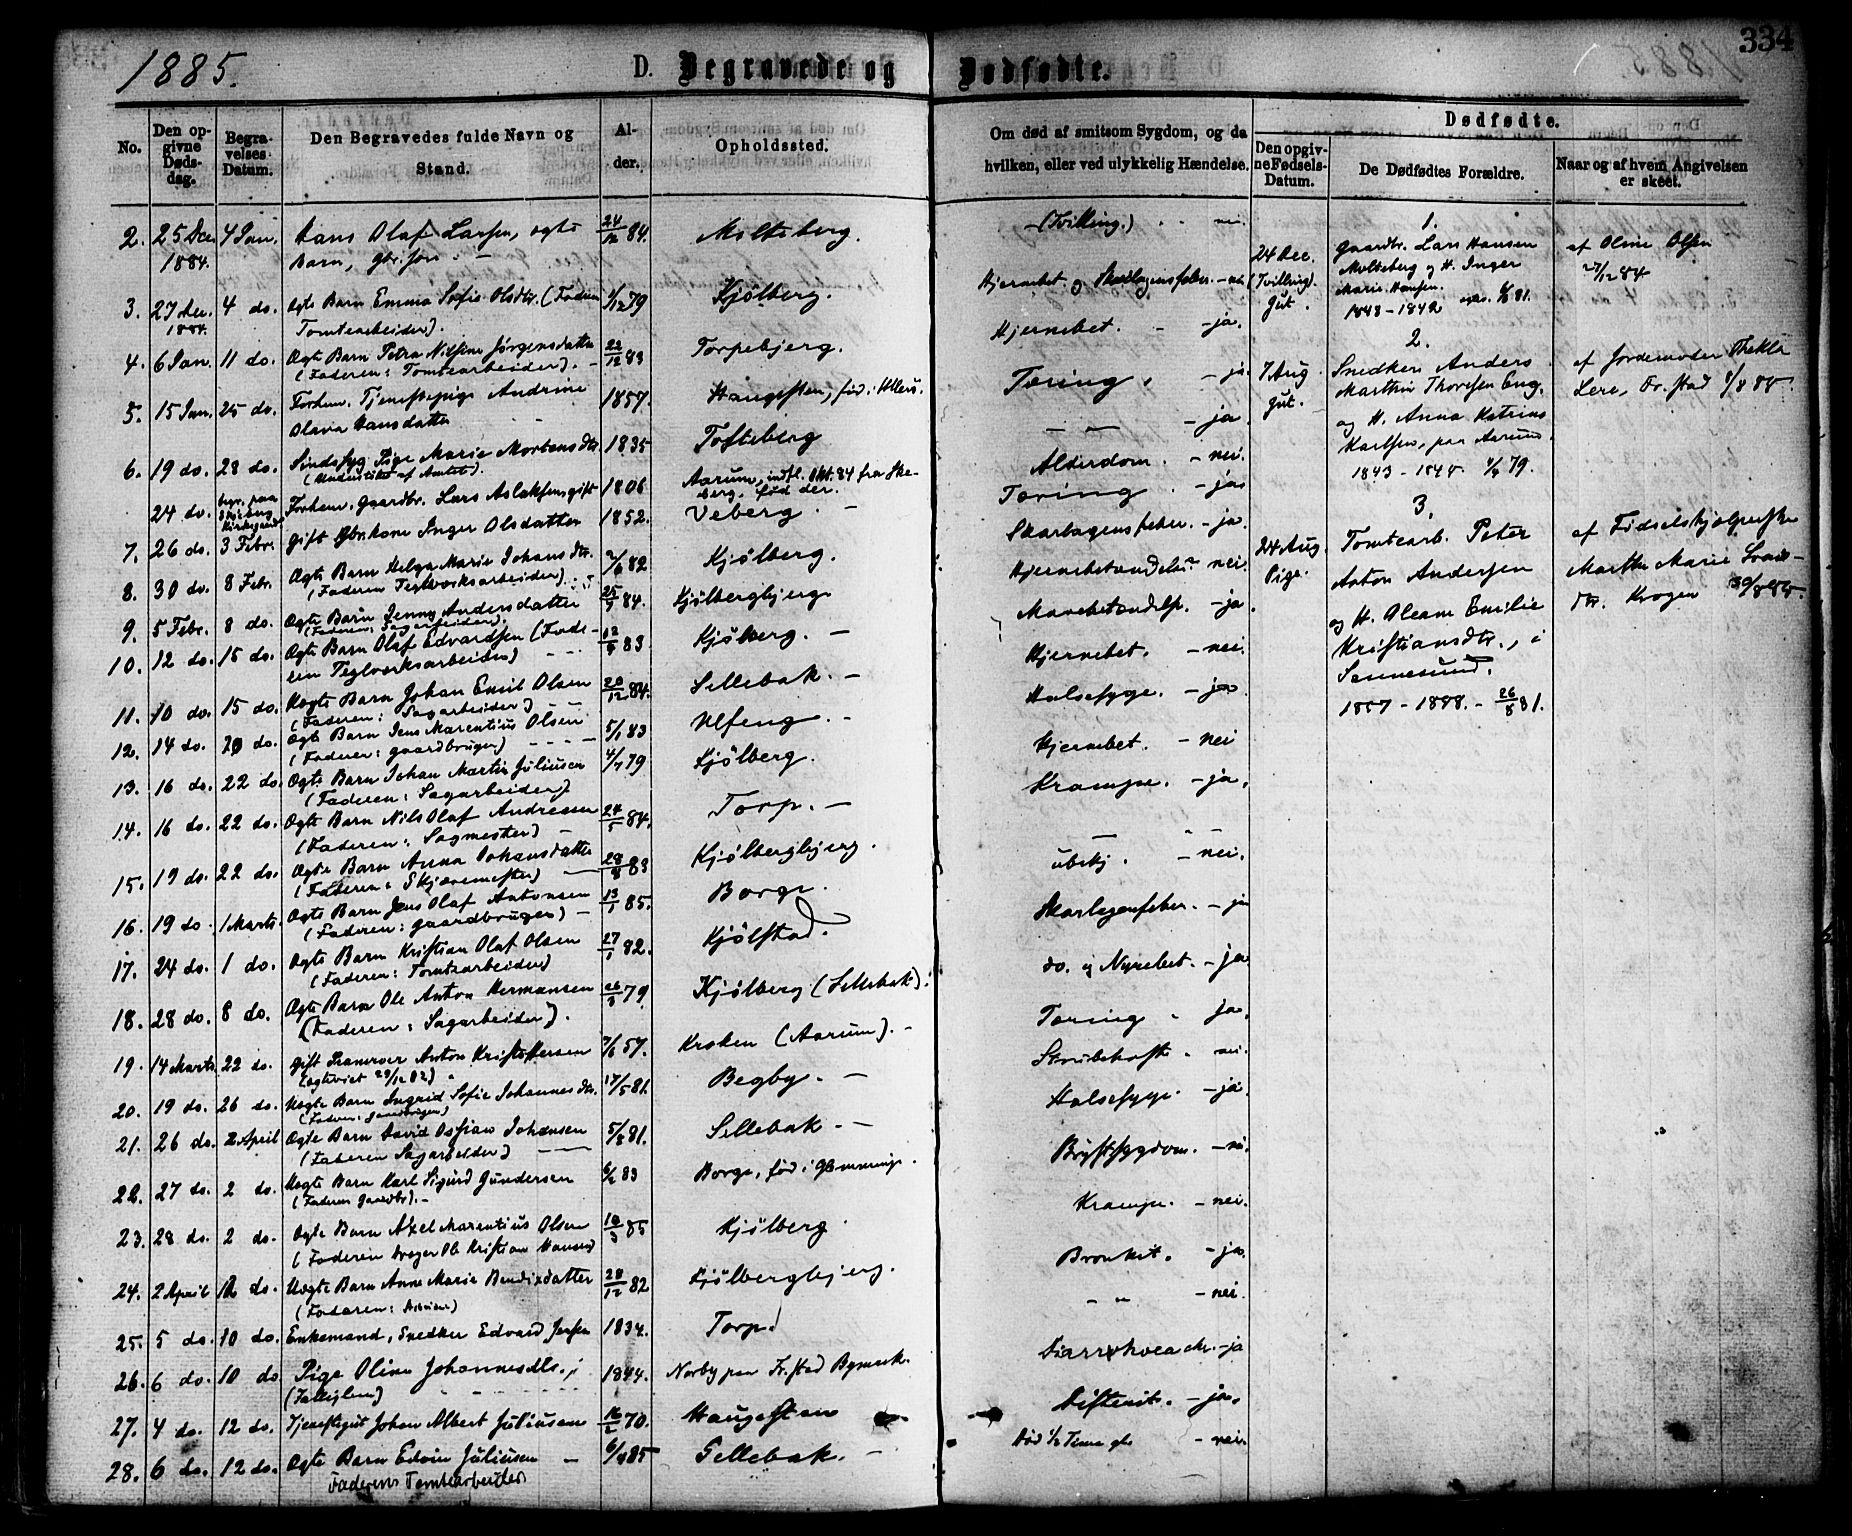 334
1885.
D. Begravede og Dødfødte.
No.
Den opgivne Dødsdag.
Begravelses Datum.
Den Begravedes fulde Navn og Stand.
Alder.
Opholdssted.
Om død af smitsom Sygdom, og da hvilken, eller ved ulykkelig Hændelse.
Dødfødte.
Den opgivne Fødsels-Datum.
De Dødfødtes Forældre.
Naar og af hvem Angivelsen er skeet.
2. 25 Dec. 1884. 4 Jan. Hans Olaf Larsen, ægte 24/12 84. Molteberg. (Tvilling.) nei.
Barn,
3. 27 Dec. 1884. 4 do. Ægte Barn Emma Sofie Olsdtr. (Faderen 79 Kjølberg.
Tomtearbeider).
4. 6 Jan 11 do. Ægte Barn Petra Nilsine Jørgensdatter 22/12 83 Torpebjerg. Hjernebet. - ja.
(Faderen: Tomtearbeider).
5. 15 Jan. 25 do. Forhen. Tjenestepige Andrine 1857. Haugesten, Tæring. - ja
Olava Hansdatter
6. 19 do. 28 do. Sindssyg Pige Marie Mortensdtr. 1835 Tofteberg - ja
24 do. begr. paa Skjeberg Kirkegaard Forhen. Gaardbr. Lars Aslaksen, gift 1806 Aarum, indfl. Okt. 84 fra Skjeberg, født der. Alderdom. - nei.
7. 26 do. 3 Febr. Gift Gbr.kone Inger Olsdatter 1852. Veberg. Tæring. - ja
8. 30 do. 8 Febr. Ægte Barn Helga Marie Johansdtr. 82 Kjølberg. Skarlagensfeber. - ja.
(Faderen Teglværksarbeider)
9. 5 Febr. 8 do. Ægte Barn Jenny Andersdatter 84. Kjølbergbjerg Hjernebetændelse nei
(Faderen: Sagarbeider).
10. 12 do. 15 do. Ægte Barn Olaf Edvardsen (Faderen 83 Kjølberg. Mavebetændelse. - ja
Teglværksarbeider)
11. 10 do. 15 do. Uægte Barn Johan Emil Olsen 20/12 84. Sellebak. Hjernebet. - nei.
(Faderen: Sagarbeider)
12. 14 do. 20 do. Ægte Barn Jens Marentius Olsen 5/1 83 Ulfeng. Halsesyge. - ja
(Faderen: Gaardbruger)
13. 16 do. 22 do. Ægte Barn Johan Martin Juliusen 4/7 79 Kjølberg. Hjernebet. - nei
(Faderen: Sagarbeider)
14. 16 do. 22 do. Ægte Barn Nils Olaf Andresen 24/5 84. Torp. Krampe. - ja.
(Faderen: Sagmester)
15. 19 do. 22 do. Ægte Barn Anna Johansdatter 83 Kjølbergbjerg. - nei
(Faderen: Skjæremester)
16. 19 do. 1 Marts. Ægte Barn Jens Olaf Antonsen 13/1 85. Borge. ubekj. - nei.
(Faderen: Gaardbruger)
17. 24 do. 1 do. Ægte Barn Kristian Olaf Olsen 82. Kjølstad. Skarlagensfeber. - ja
(Faderen: Tomtearbeider)
18. 28 do. 8 do. Ægte Barn Ole Anton Hermansen 79 Kjølberg (Sellebak). do. og Nyrebet. - ja
(Faderen: Sagarbeider).
19. 14 Marts 22 do. Gift Anton Kristoffersen 57. Kroken (Aarum). Tæring ja.
20. 19 do. 26 do. Uægte Barn Ingrid Sofie Johannesdtr. 17/5 81. Begby. Strubehoste. nei.
(Faderen: Gaardbrugen)
21. 26 do. 2 April Ægte Barn David Ossian Johansen 81. Sellebak. Halsesyge. - ja.
(Faderen Sagarbeider)
22. 27 do. 2 do. Uægte Barn Karl Sigurd Gundersen 83 Borge, født i Glemminge. Brystsygdom. - nei.
(Faderen Gaardbr).
23. 28 do. 2 do. Ægte Barn Axel Marentius Olsen 85 Kjølberg. Krampe. - nei.
(Faderen Ole Kristian Hansen)
24. 2 April 12 do. Uægte Barn Anne Marie Bendixdatter 28/12 82 Kjølbergbjerg. Bronkit. - ja.
(Faderen: Arbeider)
25. 5 do. 10 do. Enkemand, Snedker Edvard Jensen 1834. Torp. - nei.
26. 6 do. 10 do Pige Oline Johannesdtr. 1844. Norby paa Fr.stad Bymark. Diarrhoea chr. - ja
27. 4 do. 12 do. Tjenestegut Johan Albert Juliusen 70. Haugesten Difterit. - ja.
28. 6 do. 12 do. Ægte Barn Edvin Juliusen 6/4 85 Sellebak. Død 1/2 Time gl. - nei.
Faderen: Tomtearbeider
Hjernebet. og Skarlagensfeber. - nei
1.
24 Dec. (Tvilling) Gut. Gaardbr. Lars Hansen
Molteberg og H. Inger
Marie Hansen.
1843 - 1842
af Oline Olsen
27/12 84
2.
7 Aug. Gut. Snedker Anders
Marthin Thoresen Eng,
og H. Anna Katrine
paa Aarum.
1843 - 79.
af Jordemoder Thekla
Lere, Fr.stad
3.
24 Aug. Pige. Tomtearb. Peter
Anton Andersen
og H. Emilie
Kristiansdtr., i
Sannesund.
1857 - 26/8 81.
af Fødselshjælperske
Marthe Marie
Krogen